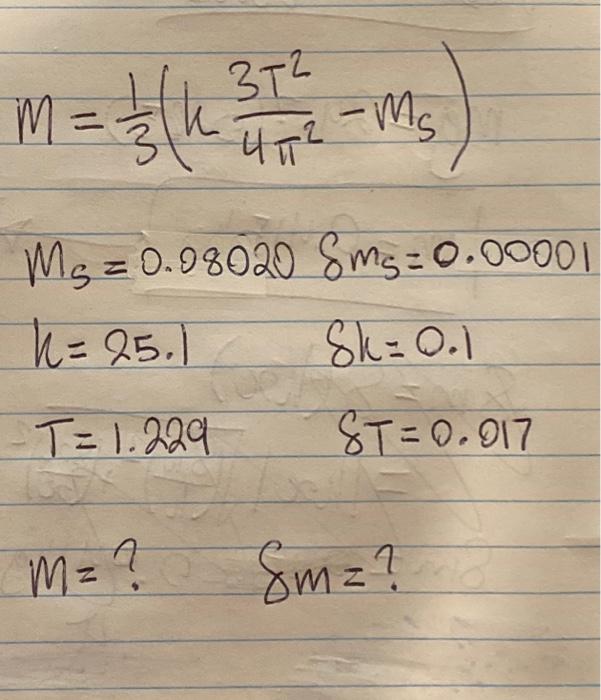 m = 1/3 (k 3T²/4π² - m_s)
m_s = 0.08020 δm_s = 0.00001
k = 25.1 δk = 0.1
T = 1.229 δT = 0.017
m = ? δm = ?